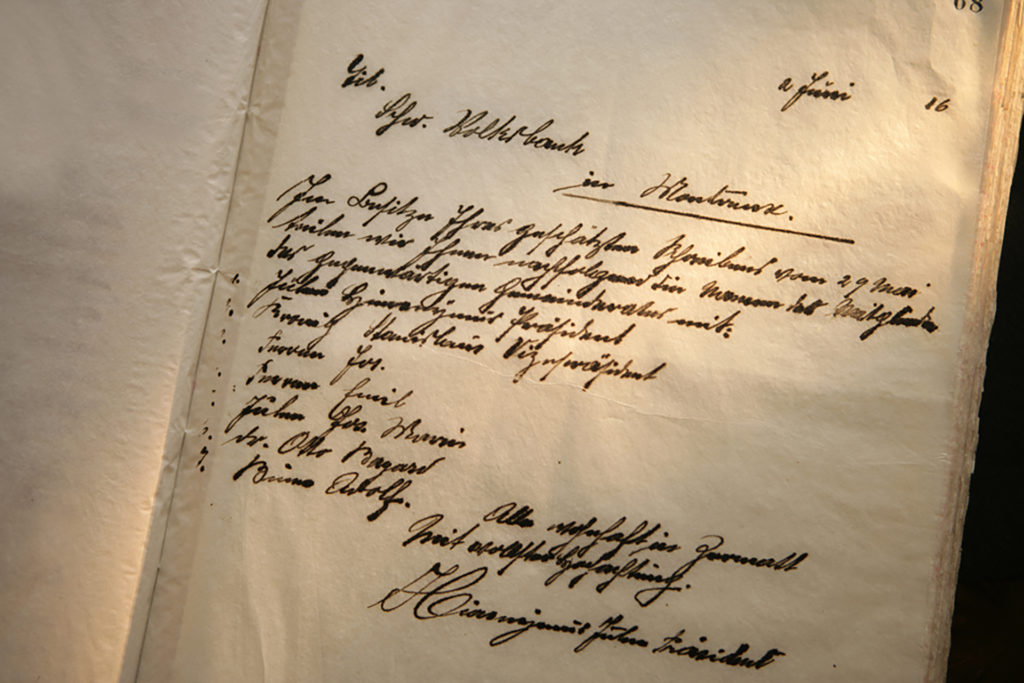 68
2 Juni 16
Tit.
Schw. Volksbank
in Montreux.
Im Besitze Ihres geschätzten Schreibens vom 29 Mai
teilen wir Ihnen nachfolgend die Namen des Mitglieder
des gegenwärtigen Gemeinderates mit:
1. Julen Hieronymus Präsident
2. Kronig Stanislaus Vizepräsident
Perren Jos.
Perren Emil
Julen Jos. Marie
6. Dr. Otto Bayard
7. Biner Adolf.
Alle wohnhaft in Zermatt
Mit vollster Hochachtung.
Hieronymus Julen Präsident